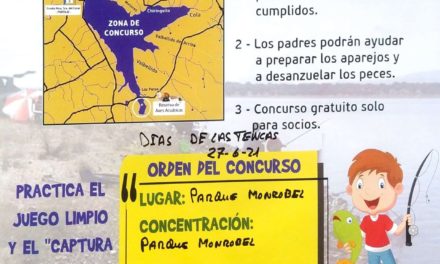 cumplidos.
ZONA DE
CONCURSO
Chiringuito
Cola
Valbellido de Arriba
Valbellido
2 - Los padres podrán ayudar
a preparar los aparejos y
a desanzuelar los peces.
3 - Concurso gratuito solo
para socios.
DIAS DE LAS TENCAS
27-6-21
ORDEN DEL CONCURSO
LUGAR: PARQUE MONROBEL
CONCENTRACIÓN:
PARQUE MONROBEL
PRACTICA EL
JUEGO LIMPIO
Y EL "CAPTURA